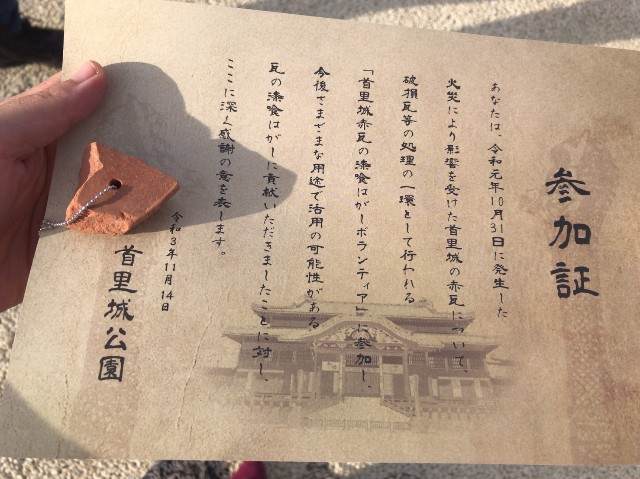 参加証
あなたは、令和元年10月31日に発生した
火災により影響を受けた首里城の赤瓦について、
破損瓦等の処理の一環として行われる
「首里城赤瓦の漆喰はがしボランティア」に参加し、
今後さまざまな用途で活用の可能性がある
瓦の漆喰はがしに貢献いただきましたことに対し、
ここに深く感謝の意を表します。
令和3年11月14日
首里城公園